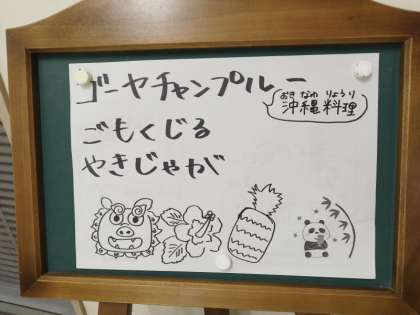 ゴーヤチャンプルー
おきなわ りょうり
沖縄料理
ごもくじる
やきじゃが